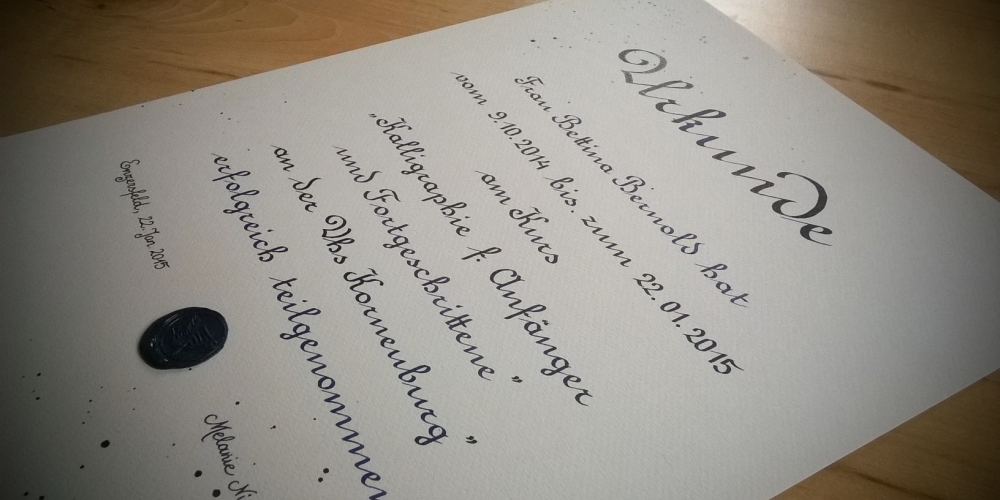 Urkunde
Frau Bettina Bernold hat
vom 9.10.2014 bis. zum 22.01.2015
am Kurs
„Kalligraphie f. Anfänger
und Fortgeschrittene”
an der Vhs Korneuburg”
erfolgreich teilgenommen
Enzersfeld, 22. Jan 2015
Melanie